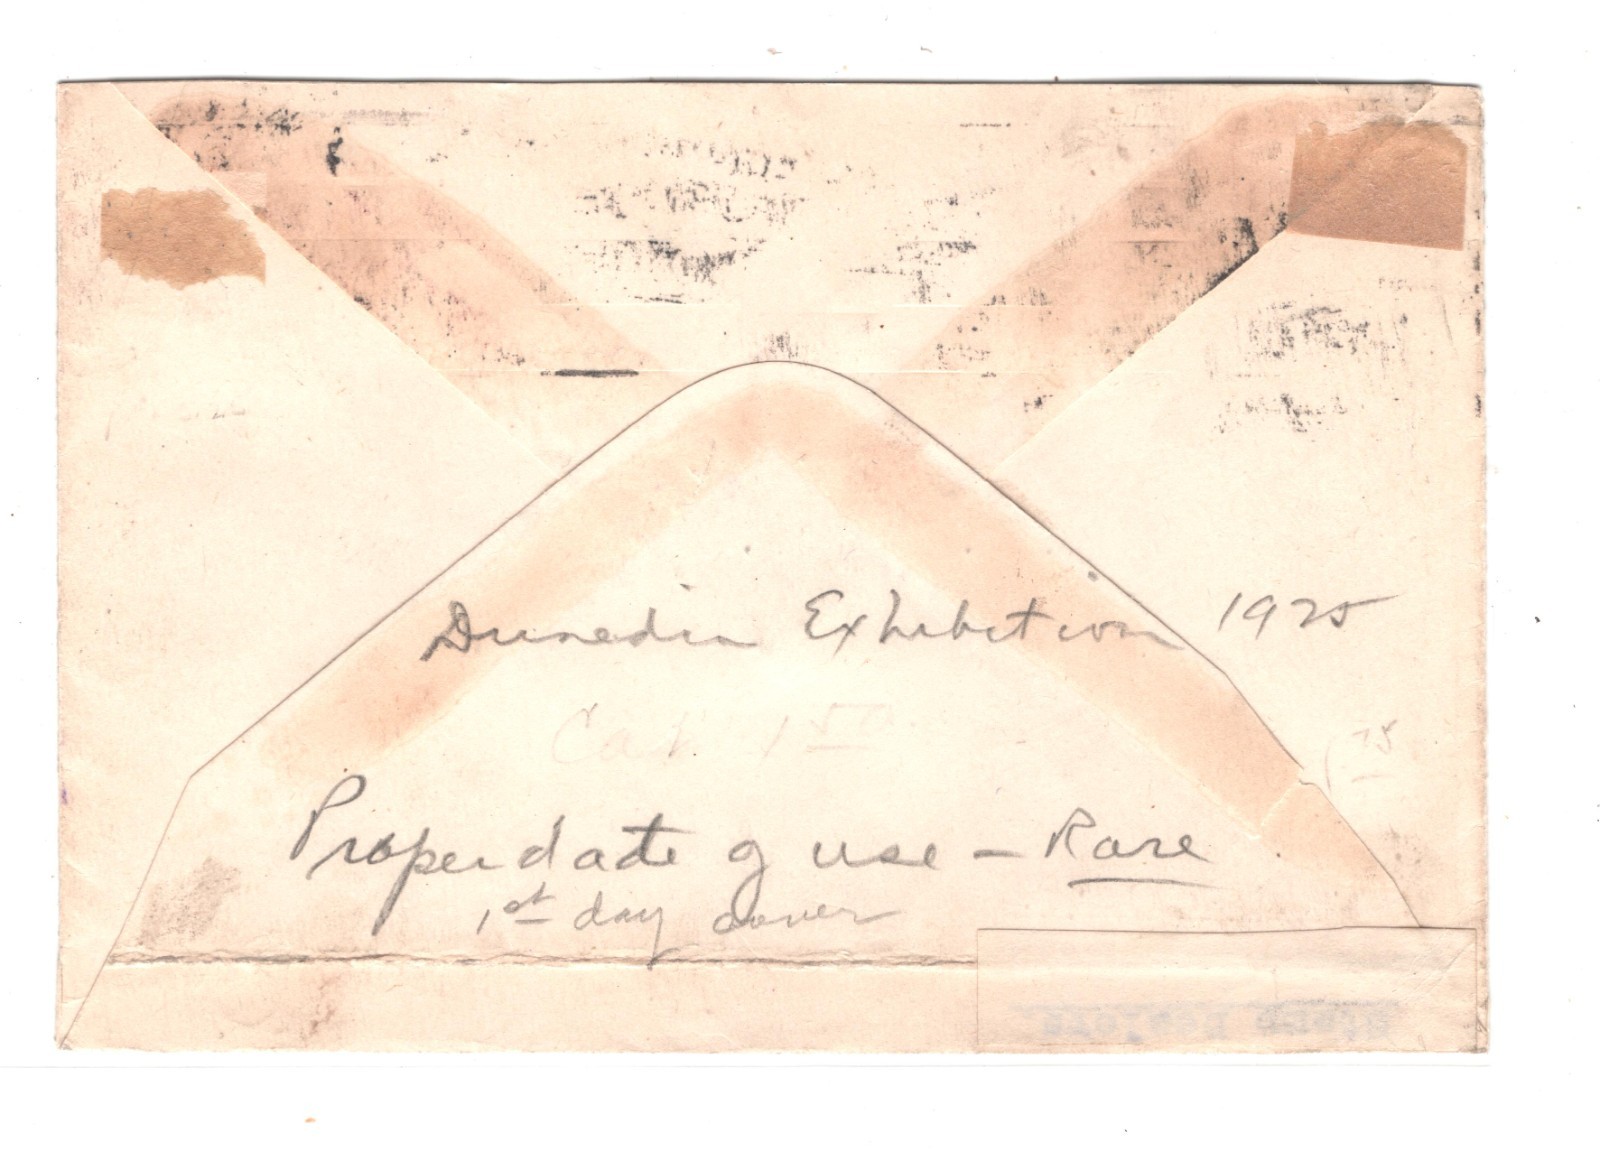 Dunedin Exhibition 1925
Cat 1 50
1 75
Proper date of use - Rare
1st day cover